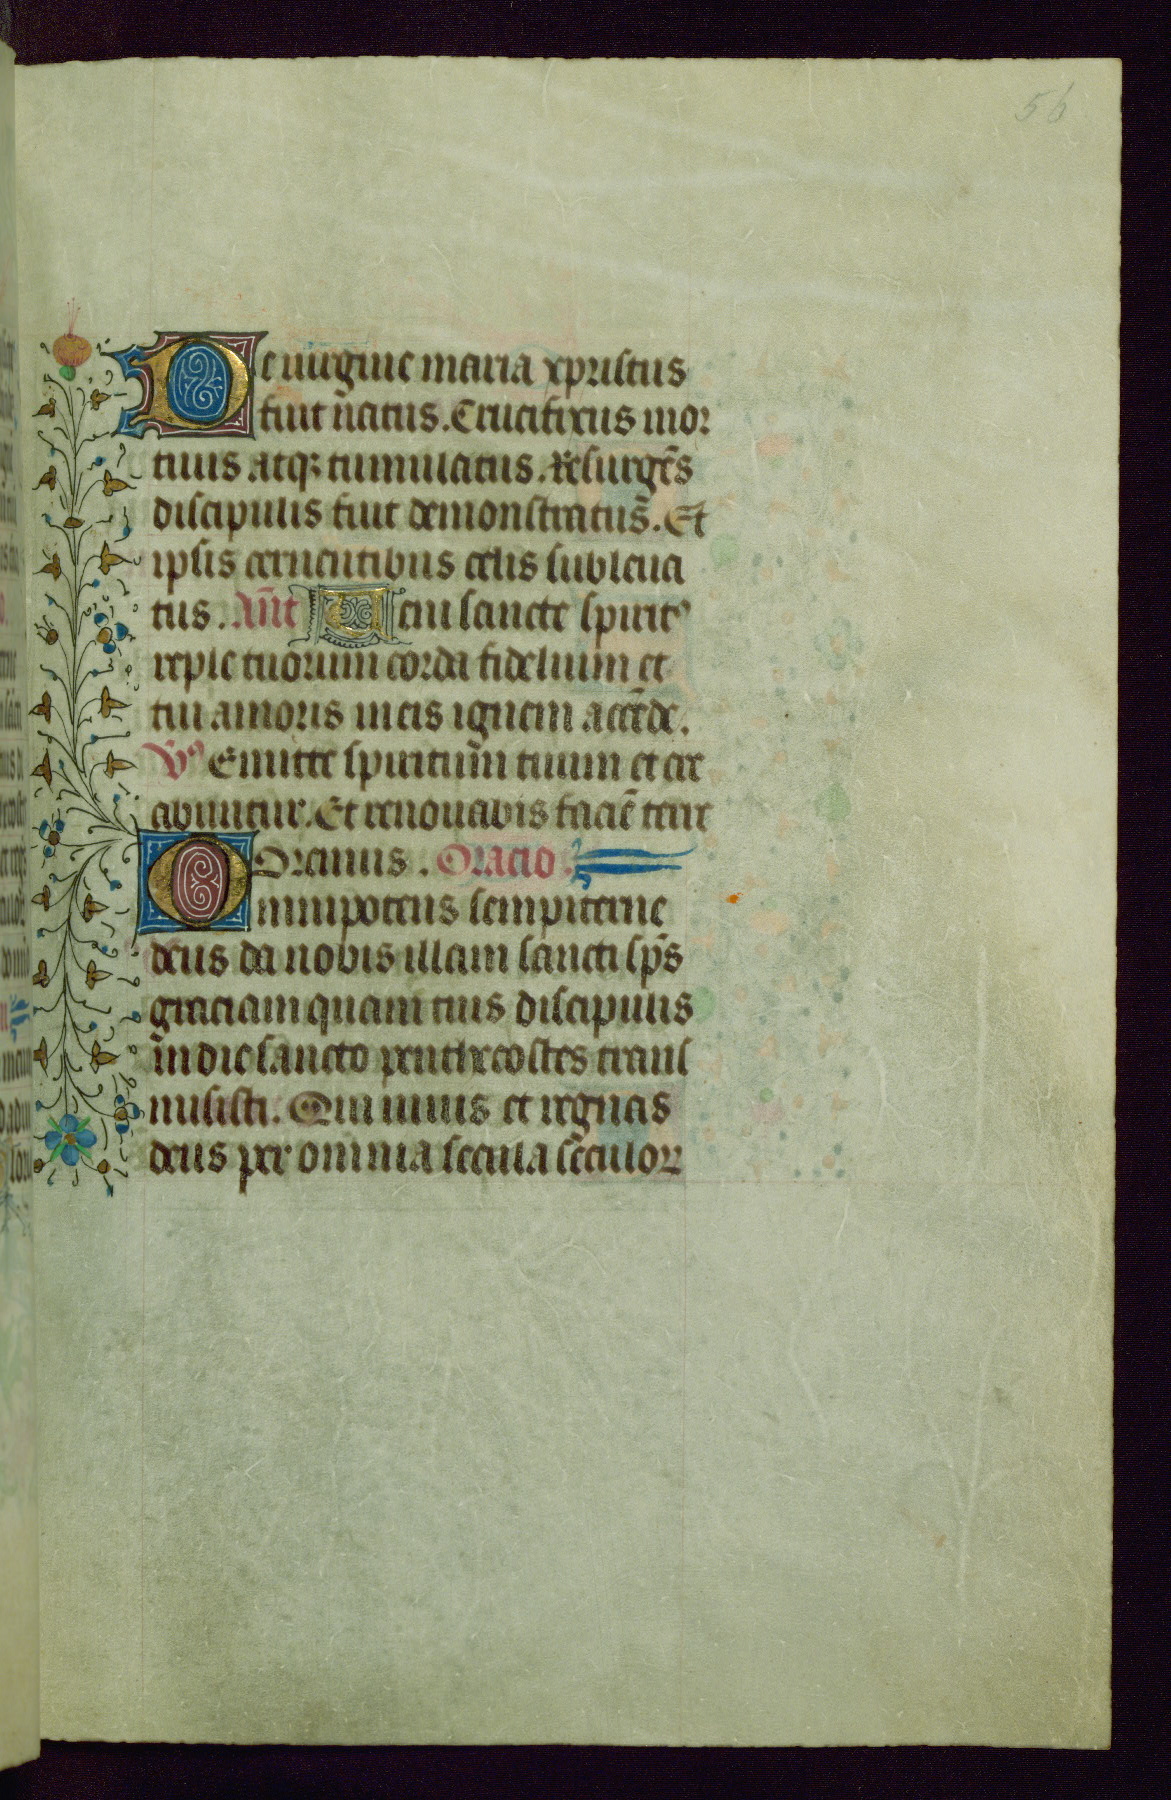 56
De uirgine maria xpristus
fuit n̄atus. Crucifixus mor
tuus atqꝫ tumulatus. Resurgēs
discipulis fuit demonstratus̄. Et
ipsis cernentibus celis subleua
tus. An̄t Ueni sancte spiritꝰ
reple tuorum corda fidelium et
tui amoris in eis ignem accēde.
V᷒ Emitte spiritum̄ tuum et cre
abuntur. Et renouabis faciē terre
Oremus. Oracio.
Omnipotens sempiterne
deus da nobis illam sancti sp̄s
graciam quam tuis discipulis
in die sancto penthecostes trans
misisti. Qui uiuis et regnas
deus per omnia secula sēculoꝝ